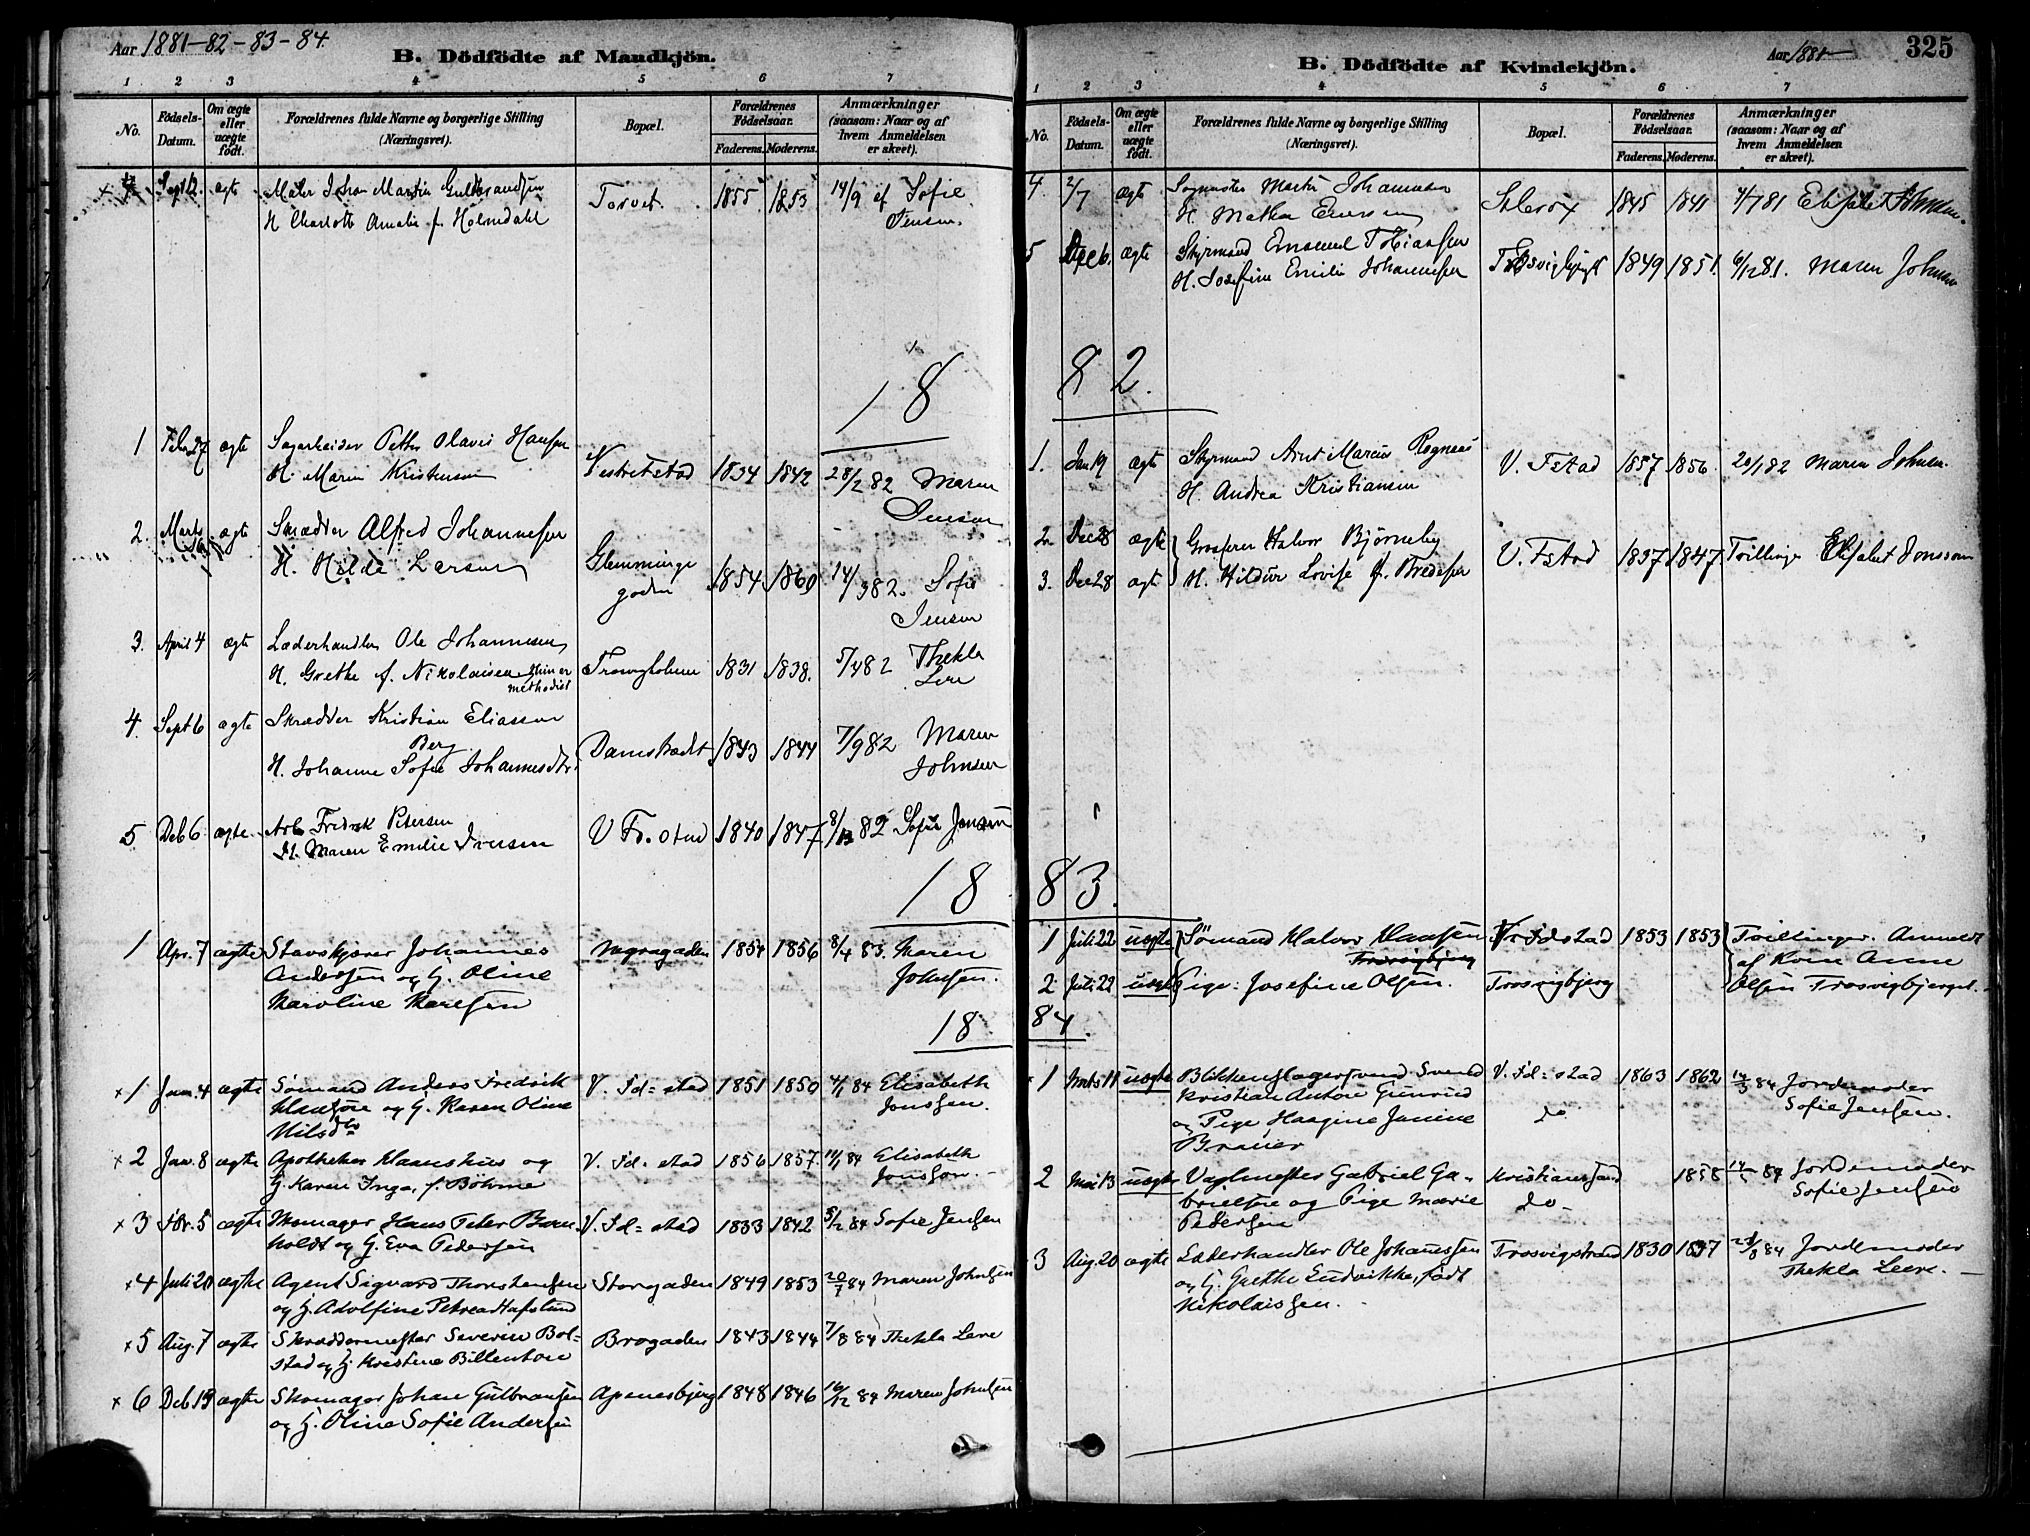 Aar 1881-82-83-84.
B. Dödfödte af Mandkjön.
1 2 3 4 5 6 7
No. Fødsels-Datum. Om ægte eller uægte født. Forældrenes fulde Navne og borgerlige Stilling (Næringsvei). Bopæl. Forældrenes Fødselsaar. Faderens. Moderens. Anmærkninger (saasom: Naar og af hvem Anmeldelsen er skeet).
Sept 12. ægte Maler Johan Martin Gulbrandsen Torvet. 1855 1853 14/9 af Sofie
H. Charlotte Amalie f. Holmdahl Jensen.
18
1 Febr 27 ægte Sagarbeider Petter Olavus Hansen
H. Maren Kristensen Vestre Fstad 1834 1842 28/2 82 Maren
Jensen
2. Marts ægte Skrædder Alfred Johannesen
H. Hilda Larsen Glemminge
gaden 1854 1860 14/3 82. Sofie
Jensen
3. April 4 ægte Læderhandler Ole Johannesen
H. Grethe f. Nikolaisen Hun er
methodist Trosvigholmen 1831 1838. 5/4 82 Thekla
Lere
4. Sept 6 ægte Skrædder Kristian Eliassen
Berg
H. Johanne Sofie Johannesdtr. Damstrædet 1843 1844 7/9 82 Maren
Johnsen
5 Deb 6. ægte. Arb. Fredrik Petersen
H. Maren Emilie Iversen V Fr.stad 1840 1847 8/12 82 Sofie Jensen
18
1 Apr. 7 ægte Stavskjærer Johannes
Andersen og H. Oline
Karoline Karlsen 1854 1856 8/4 83. Maren
Johnsen.
18
x 1 Jan. 4 ægte Sømand Anders Fredrik
Klausen og H. Karen Oline
Nilsdtr V. Fd=stad 1851 1850 4/1 84 Elisabeth
Jonssen.
x 2 Jan. 8 ægte Apotheker Klaushus og
H. Karen Inga, f. Böhme V. Fd=stad 1856 1857. 11/1 84 Elisabeth
Jonsson.
x 3 Fbr. 5 ægte Skomager Hans Peter Born-
holdt og H. Eva Pedersen V. Fd=stad 1833 1842 5/2 84 Sofie Jensen
x 4 Juli 20 ægte Agent Sigvard Thorstensen
og H. Adolfine Petrea Hafslund Storgaden 1849 1853 20/7 84 Maren Johnsen
x 5 Aug. 7 ægte Skræddermester Severin Bol-
stad og H. Kristine Billenton Brogaden 1843 1844 7/8 84 Thekla Lere
x 6 Deb 19 ægte Skomager Johan Gulbransen
og H. Oline Sofie Andersen Apenesbjerg 1848 1846 16/12 84 Maren Johnsen
Aar 1881- 325
B. Dödfödte af Kvindekjön.
1 2 3 4 5 6 7
No. Fødsels-Datum. Om ægte eller uægte født. Forældrenes fulde Navne og borgerlige Stilling (Næringsvei). Bopæl. Forældrenes Fødselsaar. Faderens. Moderens. Anmærkninger (saasom: Naar og af hvem Anmeldelsen er skeet).
4 2/7 ægte Sagmester Martin Johannesen 1845 1841 4/7 81 Elisabet Johnsen.
H. Mathea
5 Dec 6. ægte Styrmand Emanuel Tobiassen
H. Josefine Emilie Johannesen Trosvigbjerget 1849 1851. 6/12 81. Maren Johnsen
82.
1. Jan 19 ægte Styrmand Arnt Marius Rognæs
H. Andrea Kristiansen V. Fstad 1857 1856. 20/1 82 Maren Johnsen.
2. Dec 28 ægte Grosserer Halvor Bjørneby
3. Dec 28 ægte H. Hildur Lovise f. Thredesen V. Fstad 1837 1847. Tvillinge Elisabet Jonsson
83.
1 Juli 22 uægte Sömand Halvor Klausen Fredstad 1853 1853 Tvillinger. Anmeldt
Trosvigbjerg af Kone Anne
2 Juli 22 uægte Pige. Josefine Olsen. Trosvigbjerg Olsen Trosvigbjerget.
84.
1 Mrts 11 uægte Blikkenslagersvend Svend
Kristian Anton Gunrud
og Pige Haagine Janine
Brauer V. Fd=stad
do 1863 1862 12/3 84 Jordemoder
Sofie Jensen.
2 Mai 13 uægte Vaglmester Gabriel Ga-
brielsen og Pige Marie
Pedersen Kristianssand
do- 1858 14/5 84 Jordemoder
Sofie Jensen
3 Aug. 20 ægte Læderhandler Ole Johannssen
og H. Grethe Ludvikke, født
Nikolaissen. Trosvigstrand 1830 1837 23/8 84 Jordemoder
Thekla Leere.